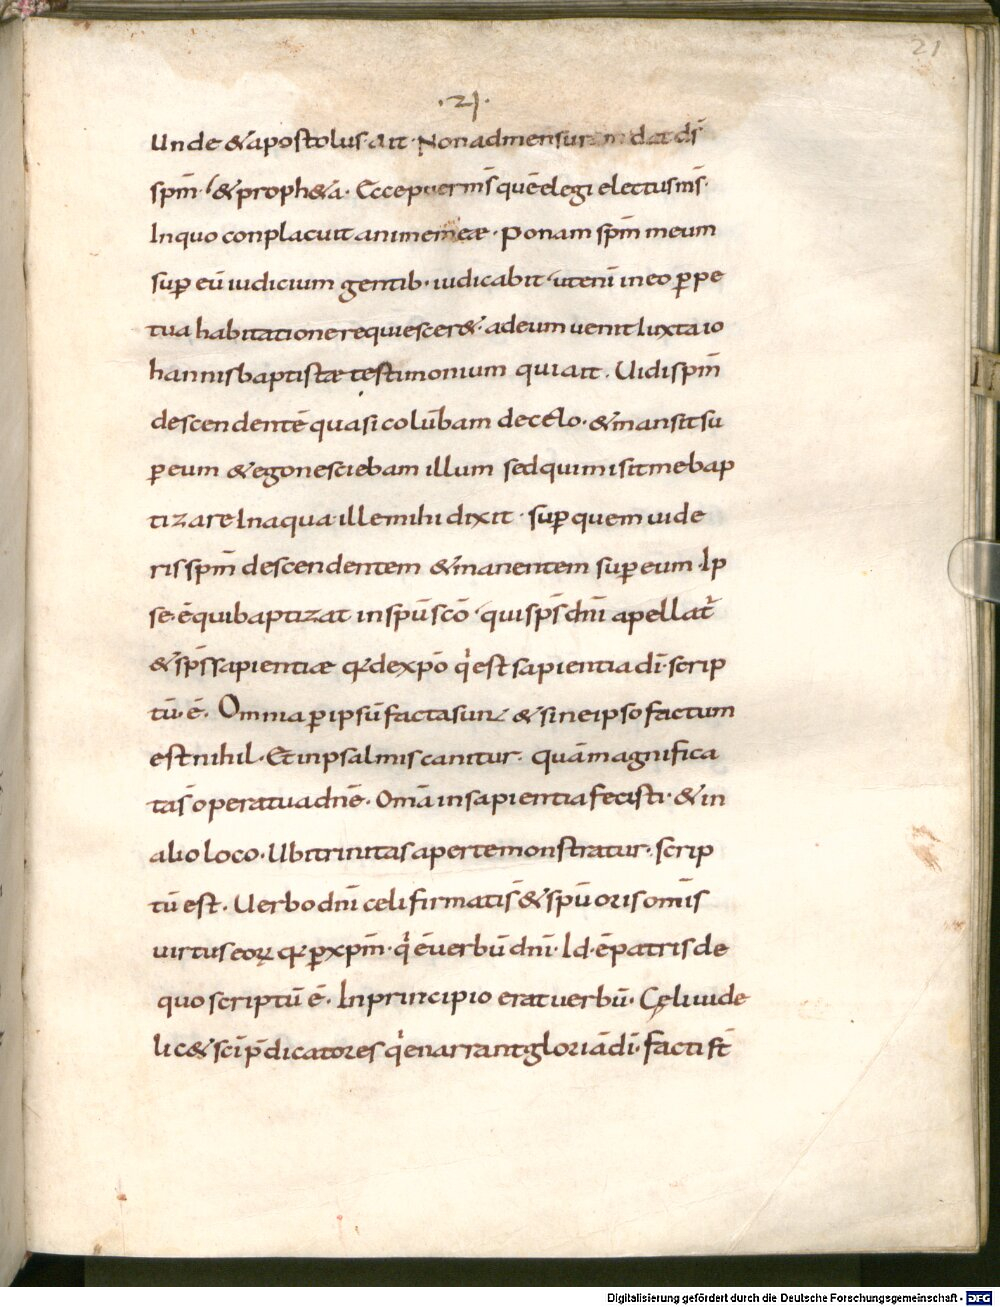 21
·21·
Unde & apostolus ait· Non ad mensuram dat d̄s
sp̄m· & proph&a· Ecce puer m̄s quē elegi electus m̄s·
In quo conplacuit anime meæ· Ponam sp̄m meum
sup̱ eū iudicium gentib· iudicabit· ut enī in eo p̱pe
tua habitatione requiescer&· ad eum uenit Iuxta io
hannis baptistæ testimonium qui ait. Uidi sp̄m
descendentē quasi colūbam de celo· & mansit su
p̱ eum & ego nesciebam illum sed qui misit me bap
tizare In aqua ille mihi dixit· sup̱ quem uide
ris sp̄m descendentem & manentem sup̱ eum· Ip
se· ē qui baptizat in sp̄u sc̄o· qui sp̄s dn̄i apellat᷑
& sp̄s sapientiæ qꝛ de xp̄o qͥ est sapientia dī· scrip
tū· ē· Omnia p̱ ipsū facta sunt & sine ipso factum
est nihil· Et in psalmis canitur· quā magnifica
ta s̄ opera tua dn̄e· Om̄a in sapientia fecisti· & in
alio loco· Ubi trinitas aperte monstratur· scrip
tū est· Uerbo dn̄i celi firmati s̄ & sp̄u oris om̄is
uirtus eoꝝ qꝛ p̱ xp̄m· qͥ ē uerbū dn̄i· Id· ē patris de
quo scriptū ē· In principio erat uerbū· Cęli uide
lic& sc̄i p̄dicatores qͥ enarrant gloriā dī· facti st̄
Digitalisierung gefördert durch die Deutsche Forschungsgemeinschaft - DFG